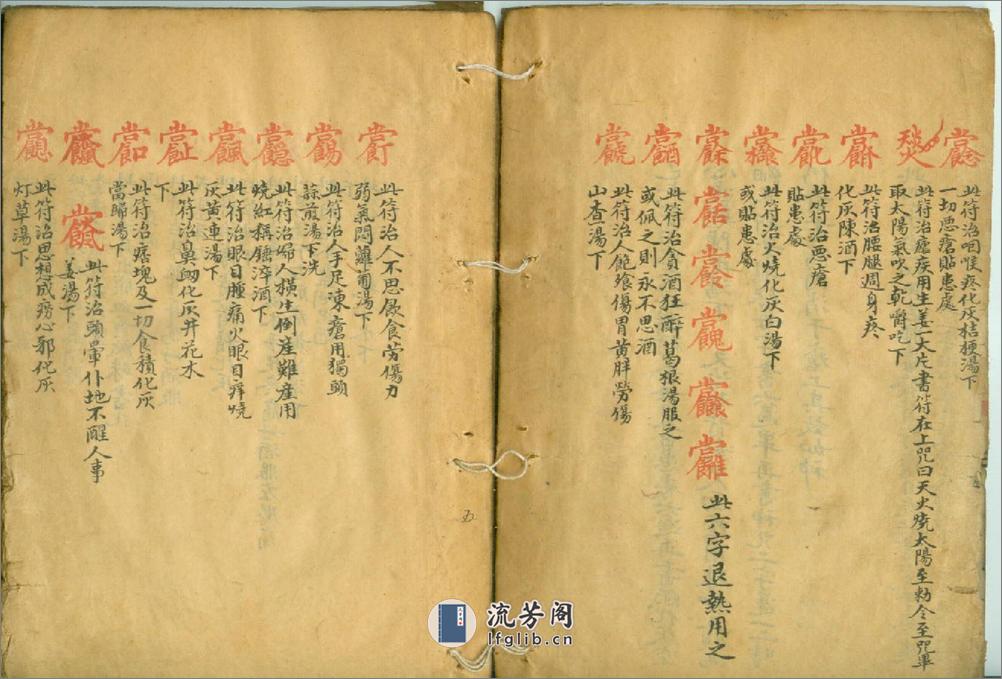 此符治咽喉疼化灰桔梗湯下
一切悪瘡貼患處
此符治瘧疾用生姜一大片書符在上咒曰天火燒太陽至勅令至咒畢
取太陽氣吹之乾嚼吃下
此符治腰腿週身疼
化灰陳酒下
此符治悪瘡
貼患處
此符治火燒化灰白湯下
或貼患處
此六字退熱用之
此符治貪酒狂醉葛根湯服之
或佩之則永不思酒
此符治人飽飧傷胃黄胖勞傷
山查湯下
此符治人不思飲食劳傷力
弱氣悶蘿蔔湯下
此符治人手足凍瘡用獨頭
蒜煎湯下洗
此符治婦人横生倒産難産用
燒紅秤錘淬酒下
此符治眼目腫痛火眼目痒燒
灰黄連湯下
此符治鼻衂化灰井花水
下
此符治痞塊及一切食積化灰
當歸湯下
此符治頭暈仆地不醒人事
姜湯下
此符治思想成癆心邪化灰
灯草湯下
五
流芳阁
lfglib.cn